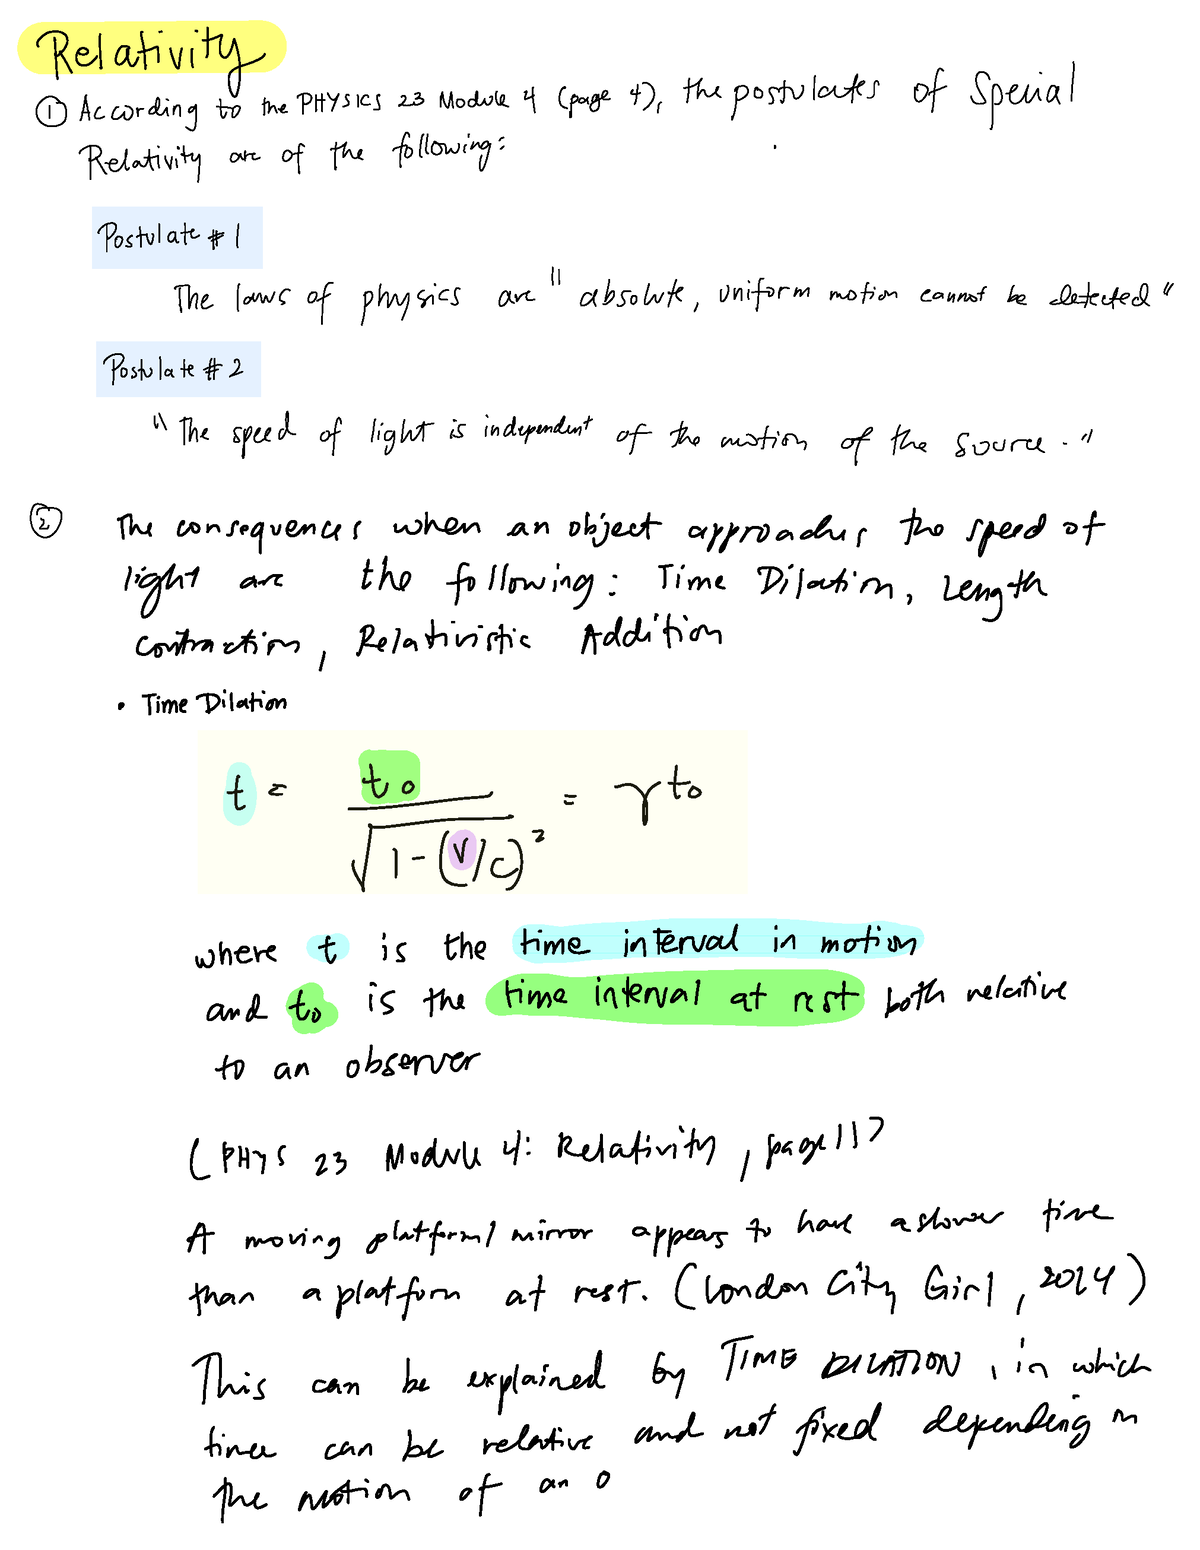 Relativity
① According to the PHYSICS 23 Module 4 (page 4), the postulates of Special
Relativity are of the following:
Postulate # 1
The laws of physics are " absolute, uniform motion cannot be detected "
Postulate # 2
" The speed of light is independent of the motion of the source . "
② The consequences when an object approaches the speed of
light are the following : Time Dilation, Length
contraction, Relativistic Addition
• Time Dilation
t = t₀ / √(1 - (v/c)²) = γ t₀
where t is the time interval in motion
and t₀ is the time interval at rest both relative
to an observer
( PHYS 23 Module 4: Relativity , page 11)
A moving platform / mirror appears to have a slower time
than a platform at rest. (London City Girl, 2014)
This can be explained by TIME DILATION , in which
time can be relative and not fixed depending on
the motion of an o